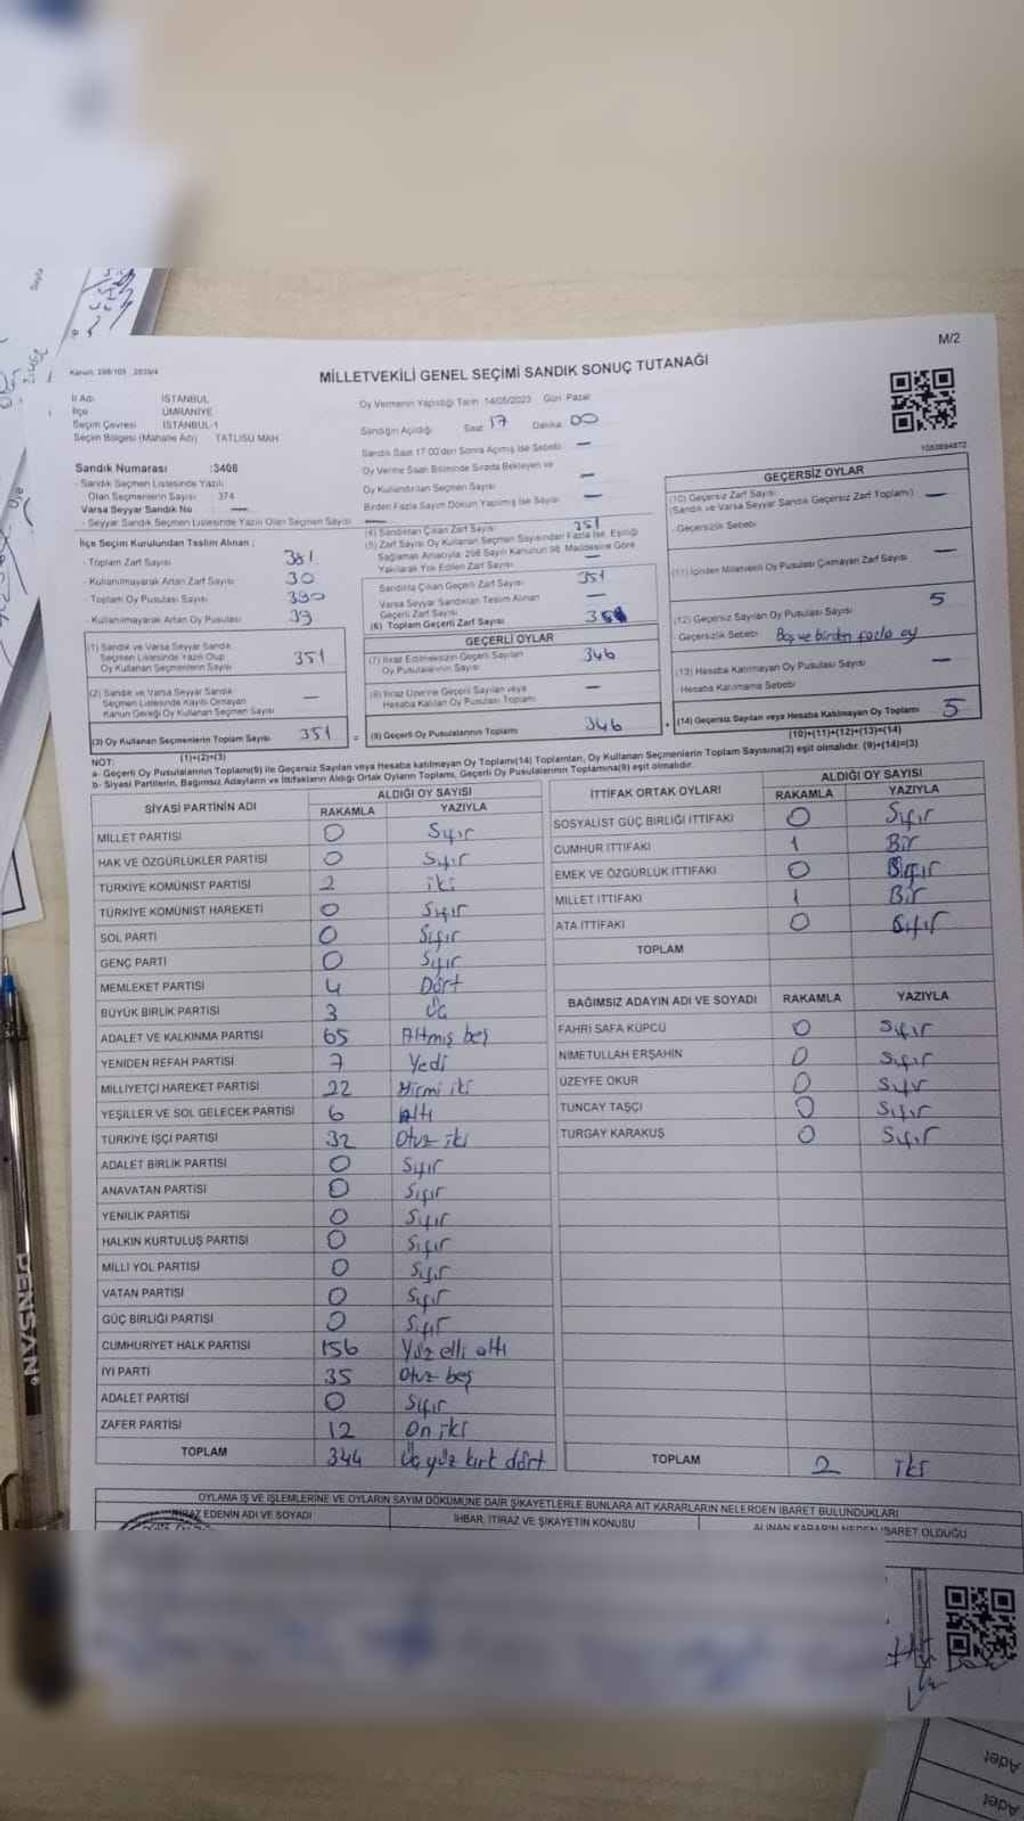 M/2
Kanun: 298/105
MİLLETVEKİLİ GENEL SEÇİMİ SANDIK SONUÇ TUTANAĞI
İl Adı İSTANBUL
İlçe ÜMRANİYE
Seçim Çevresi İSTANBUL-1
Seçim Bölgesi (Mahalle Adı) TATLISU MAH
Oy Vermenin Yapıldığı Tarih :14/05/2023 Gün: Pazar
Sandığın Açıldığı Saat 17 Dakika 00
Sandık Saat 17:00'den Sonra Açılmış İse Sebebi —
Oy Verme Saati Bitiminde Sırada Bekleyen ve
Oy Kullandırılan Seçmen Sayısı —
Birden Fazla Sayım Döküm Yapılmış İse Sayısı —
Sandık Numarası :3406
- Sandık Seçmen Listesinde Yazılı
Olan Seçmenlerin Sayısı 374
Varsa Seyyar Sandık No —
- Seyyar Sandık Seçmen Listesinde Yazılı Olan Seçmen Sayısı —
İlçe Seçim Kurulundan Teslim Alınan ;
- Toplam Zarf Sayısı 381
- Kullanılmayarak Artan Zarf Sayısı 30
- Toplam Oy Pusulası Sayısı 390
- Kullanılmayarak Artan Oy Pusulası 39
(1) Sandık ve Varsa Seyyar Sandık
Seçmen Listesinde Yazılı Olup
Oy Kullanan Seçmenlerin Sayısı 351
(2) Sandık ve Varsa Seyyar Sandık
Seçmen Listesinde Kayıtlı Olmayan
Kanun Gereği Oy Kullanan Seçmen Sayısı —
(3) Oy Kullanan Seçmenlerin Toplam Sayısı 351
(1)+(2)=(3)
(4) Sandıktan Çıkan Zarf Sayısı 351
(5) Zarf Sayısı Oy Kullanan Seçmen Sayısından Fazla İse, Eşitliği
Sağlamak Amacıyla; 298 Sayılı Kanunun 98. Maddesine Göre
Yakılarak Yok Edilen Zarf Sayısı —
Sandıkta Çıkan Geçerli Zarf Sayısı 351
Varsa Seyyar Sandıktan Teslim Alınan
Geçerli Zarf Sayısı —
(6) Toplam Geçerli Zarf Sayısı 351
GEÇERLİ OYLAR
(7) İtiraz Edilmeksizin Geçerli Sayılan
Oy Pusulası Sayısı 346
(8) İtiraz Üzerine Geçerli Sayılan veya
Hesaba Katılan Oy Pusulası Toplamı —
= (9) Geçerli Oy Pusulalarının Toplamı 346
GEÇERSİZ OYLAR
(10) Geçersiz Zarf Sayısı
(Sandık ve Varsa Seyyar Sandık Geçersiz Zarf Toplamı) —
Geçersizlik Sebebi
(11) İçinden Milletvekili Oy Pusulası Çıkmayan Zarf Sayısı —
(12) Geçersiz Sayılan Oy Pusulası Sayısı 5
Geçersizlik Sebebi Boş ve birden fazla oy
(13) Hesaba Katılmayan Oy Pusulası Sayısı —
Hesaba Katılmama Sebebi
+ (14) Geçersiz Sayılan veya Hesaba Katılmayan Oy Toplamı 5
(10)+(11)+(12)+(13)=(14)
NOT:
a- Geçerli Oy Pusulalarının Toplamı(9) ile Geçersiz Sayılan veya Hesaba Katılmayan Oy Toplamı(14) Toplamları, Oy Kullanan Seçmenlerin Toplam Sayısına(3) eşit olmalıdır. (9)+(14)=(3)
b- Siyasi Partilerin, Bağımsız Adayların ve İttifakların Aldığı Ortak Oyların Toplamı, Geçerli Oy Pusulalarının Toplamına(9) eşit olmalıdır.
SİYASİ PARTİNİN ADI ALDIĞI OY SAYISI
RAKAMLA YAZIYLA
MİLLET PARTİSİ 0 Sıfır
HAK VE ÖZGÜRLÜKLER PARTİSİ 0 Sıfır
TÜRKİYE KOMÜNİST PARTİSİ 2 iki
TÜRKİYE KOMÜNİST HAREKETİ 0 Sıfır
SOL PARTİ 0 Sıfır
GENÇ PARTİ 0 Sıfır
MEMLEKET PARTİSİ 4 Dört
BÜYÜK BİRLİK PARTİSİ 3 Üç
ADALET VE KALKINMA PARTİSİ 65 Altmış beş
YENİDEN REFAH PARTİSİ 7 Yedi
MİLLİYETÇİ HAREKET PARTİSİ 22 Yirmi iki
YEŞİLLER VE SOL GELECEK PARTİSİ 6 Altı
TÜRKİYE İŞÇİ PARTİSİ 32 Otuz iki
ADALET BİRLİK PARTİSİ 0 Sıfır
ANAVATAN PARTİSİ 0 Sıfır
YENİLİK PARTİSİ 0 Sıfır
HALKIN KURTULUŞ PARTİSİ 0 Sıfır
MİLLİ YOL PARTİSİ 0 Sıfır
VATAN PARTİSİ 0 Sıfır
GÜÇ BİRLİĞİ PARTİSİ 0 Sıfır
CUMHURİYET HALK PARTİSİ 156 Yüz elli altı
İYİ PARTİ 35 Otuz beş
ADALET PARTİSİ 0 Sıfır
ZAFER PARTİSİ 12 On iki
TOPLAM 344 Üç yüz kırk dört
İTTİFAK ORTAK OYLARI ALDIĞI OY SAYISI
RAKAMLA YAZIYLA
SOSYALİST GÜÇ BİRLİĞİ İTTİFAKI 0 Sıfır
CUMHUR İTTİFAKI 1 Bir
EMEK VE ÖZGÜRLÜK İTTİFAKI 0 Sıfır
MİLLET İTTİFAKI 1 Bir
ATA İTTİFAKI 0 Sıfır
TOPLAM
BAĞIMSIZ ADAYIN ADI VE SOYADI RAKAMLA YAZIYLA
FAHRİ SAFA KÜPCÜ 0 Sıfır
NİMETULLAH ERŞAHİN 0 Sıfır
ÜZEYFE OKUR 0 Sıfır
TUNCAY TAŞÇI 0 Sıfır
TURGAY KARAKUŞ 0 Sıfır
TOPLAM 2 iki
OYLAMA İŞ VE İŞLEMLERİNE VE OYLARIN SAYIM DÖKÜMÜNE DAİR ŞİKAYETLERLE BUNLARA AİT KARARLARIN NELERDEN İBARET BULUNDUKLARI
İTİRAZ EDENİN ADI VE SOYADI İHBAR, İTİRAZ VE ŞİKAYETİN KONUSU ALINAN KARARIN NEDEN İBARET OLDUĞU
PENSAN
Adet
Adet